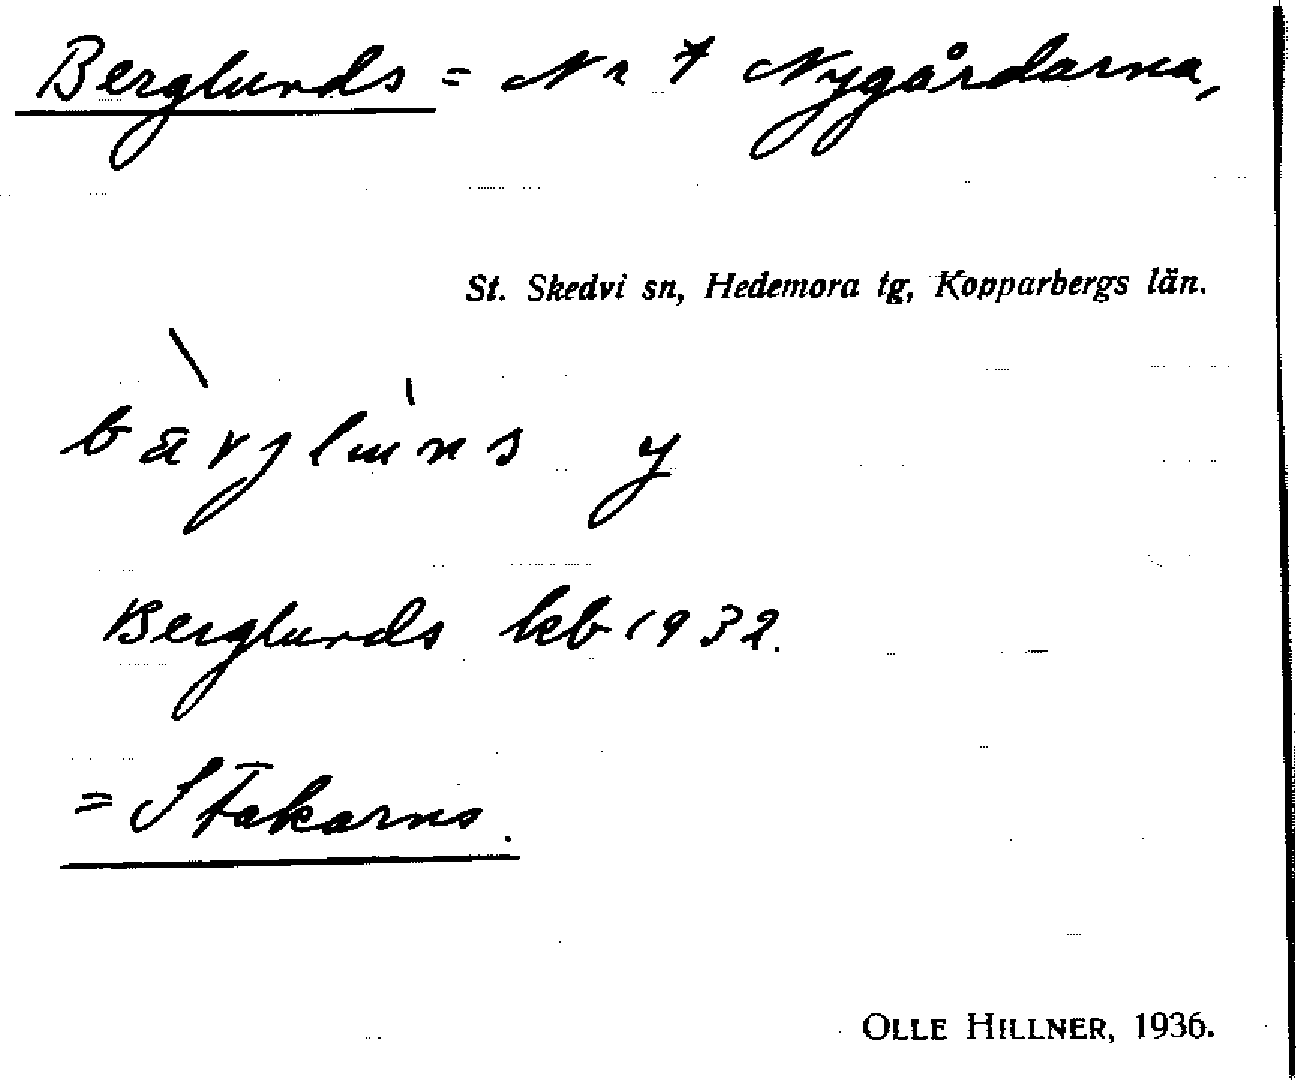 Berglunds = Nr 7 Nygårdarna,
St. Skedvi sn, Hedemora tg, Kopparbergs län.
y
Berglunds kb 1932.
= Stakarns.
OLLE HILLNER, 1936.